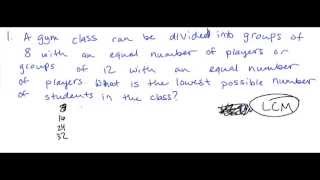 1. A gym class can be divided into groups of
8 with an equal number of players or
groups of 12 with an equal number
of players. What is the lowest possible number
of students in the class?
8
16
24
32
LCM